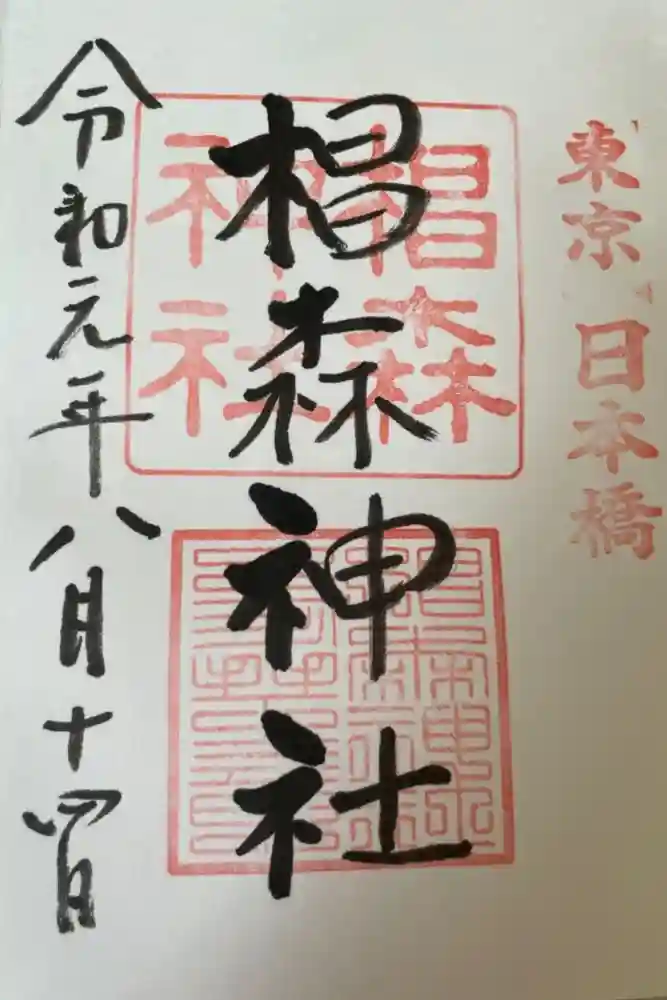 東京 日本橋
椙森神社
椙森
神社
令和元年八月十四日